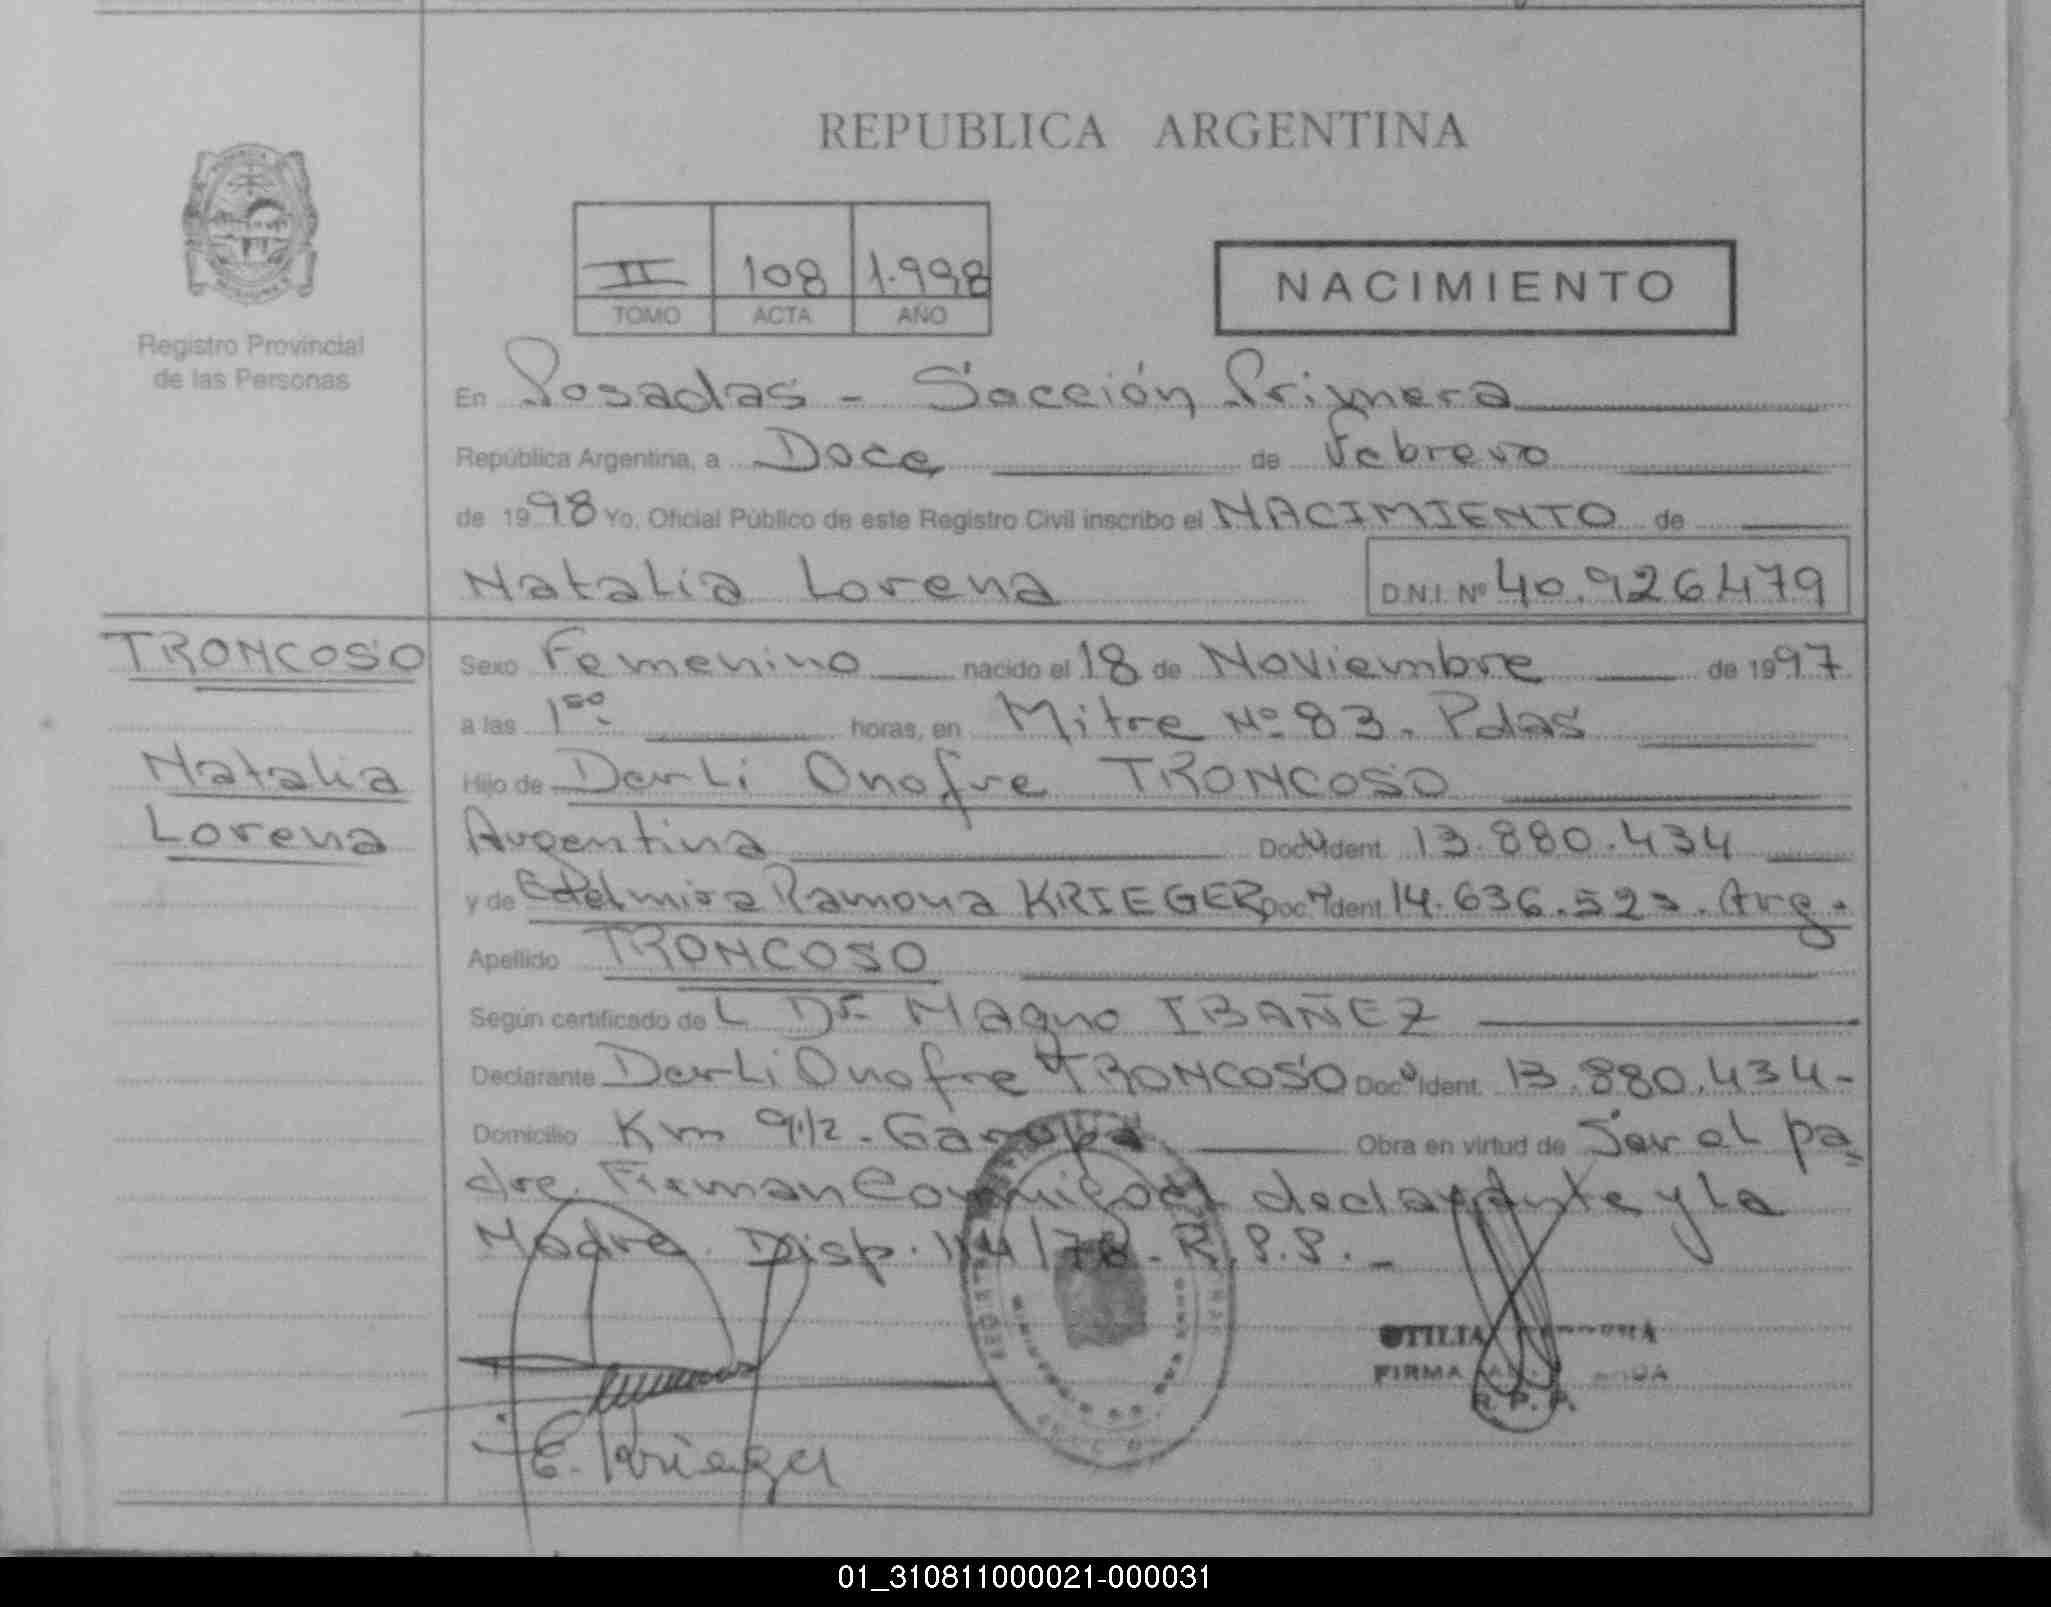 REPUBLICA ARGENTINA
Registro Provincial
de las Personas
II 108 1.998
TOMO ACTA AÑO
NACIMIENTO
En Posadas - Sección Primera
República Argentina, a Doce de Febrero
de 1998 Yo, Oficial Público de este Registro Civil inscribo el NACIMIENTO de
Natalia Lorena D.N.I. Nº 40.926479
TRONCOSO
Natalia
Lorena
Sexo Femenino nacido el 18 de Noviembre de 1997
a las 1⁵⁰ horas, en Mitre Nº 83. Pdas
Hijo de Darli Onofre TRONCOSO
Argentina Doc. Ident. 13.880.434
y de Edelmira Ramona KRIEGER Doc. Ident. 14.636.52 . Arg.
Apellido TRONCOSO
Según certificado de L Dr Magno IBAÑEZ
Declarante Darli Onofre TRONCOSO Doc. Ident. 13.880.434-
Domicilio Km 9 1/2 - Garupá Obra en virtud de Ser el pa
dre. Firman Conmigo el declarante y la
Madre. Disp. /78 - R.P.P. -
OTILIA
FIRMA
R. P. P.
E. Krieger
01_310811000021-000031